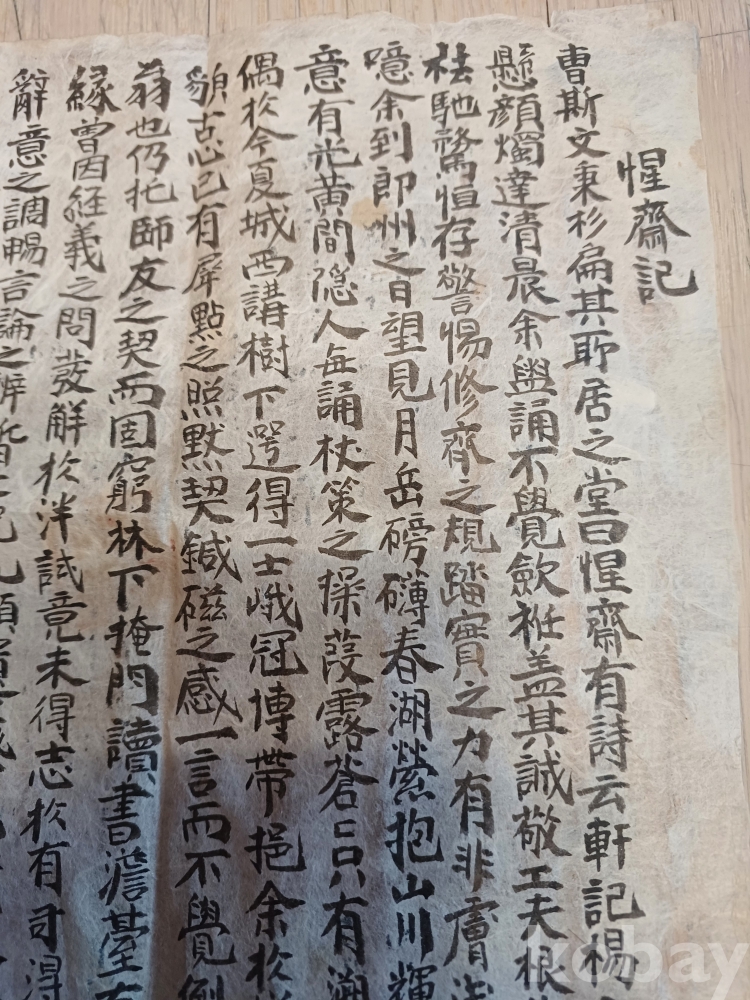 惺齋記
曺斯文秉杉扁其所居之堂曰惺齋有詩云軒記楊
懸顔燭達清晨余與誦不覺歛袵盖其誠敬工夫根
柱馳騖恒存警惕修齊之規踏實之力有非膚淺
噫余到郎州之日望見月岳磅礴春湖縈抱山川輝
意有光黃間隐人每誦杖策之操葭露蒼〻只有溯
偶扵今夏城西講樹下遌得一士峨冠博帶挹余扵
貌古心已有犀點之照黙契鍼磁之感一言而不覺倒
翁也仍托師友之契而固窮林下掩門讀書澹臺
緣曾因経義之問發解扵泮試竟未得志扵有司得
辭意之調暢言論之
kobay